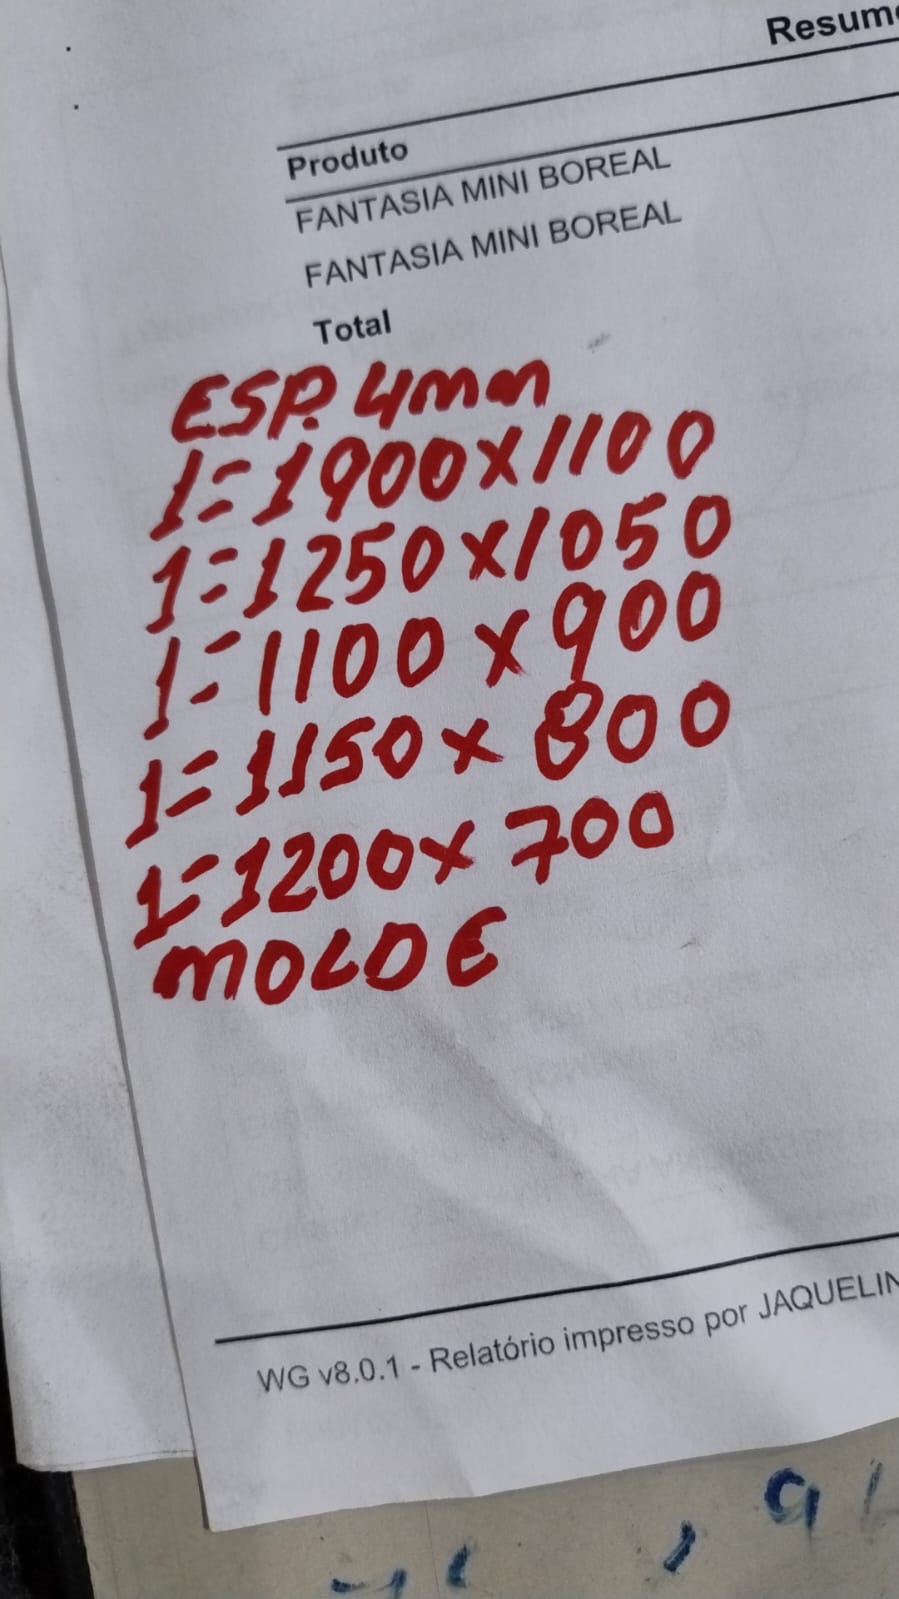 Resum
Produto
FANTASIA MINI BOREAL
FANTASIA MINI BOREAL
Total
ESP. 4mm
1=1900x1100
1=1250x1050
1=1100x900
1=1150x800
1=1200x700
MOLDE
WG v8.0.1 - Relatório impresso por JAQUELIN